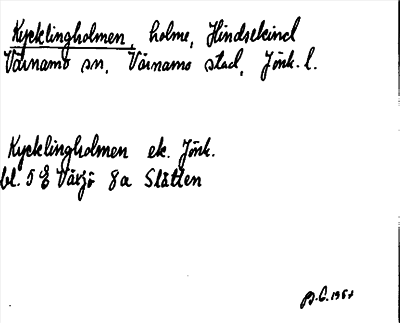 Kycklingholmen, holme, Hindsekind
Värnamo sn, Värnamo stad, Jönk. l.
Kycklingholmen ek. Jönk.
bl. 5 E Växjö 8a Slätten
1967